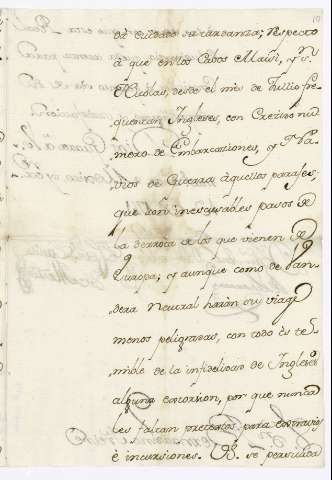 de cuidado su tardanza; respecto
à que en los Cabos Maisi, y Sn
Nicolas, desde el mes de Jullio fre
quentan Ingleses, con Crezido nu
mero de Embarcaziones, y Na
vios de Guerra, aquellos parajes,
que son inescusables pasos de
la derrota de los que vienen de
Europa; y aunque como de Van
dera Neutral harán su viage
menos peligrosos, con todo es te
mible de la infidelidad de Ingleses
alguna extorsion, por que nunca
les faltan pretextos para extravios
è incursiones. VS. se persuada